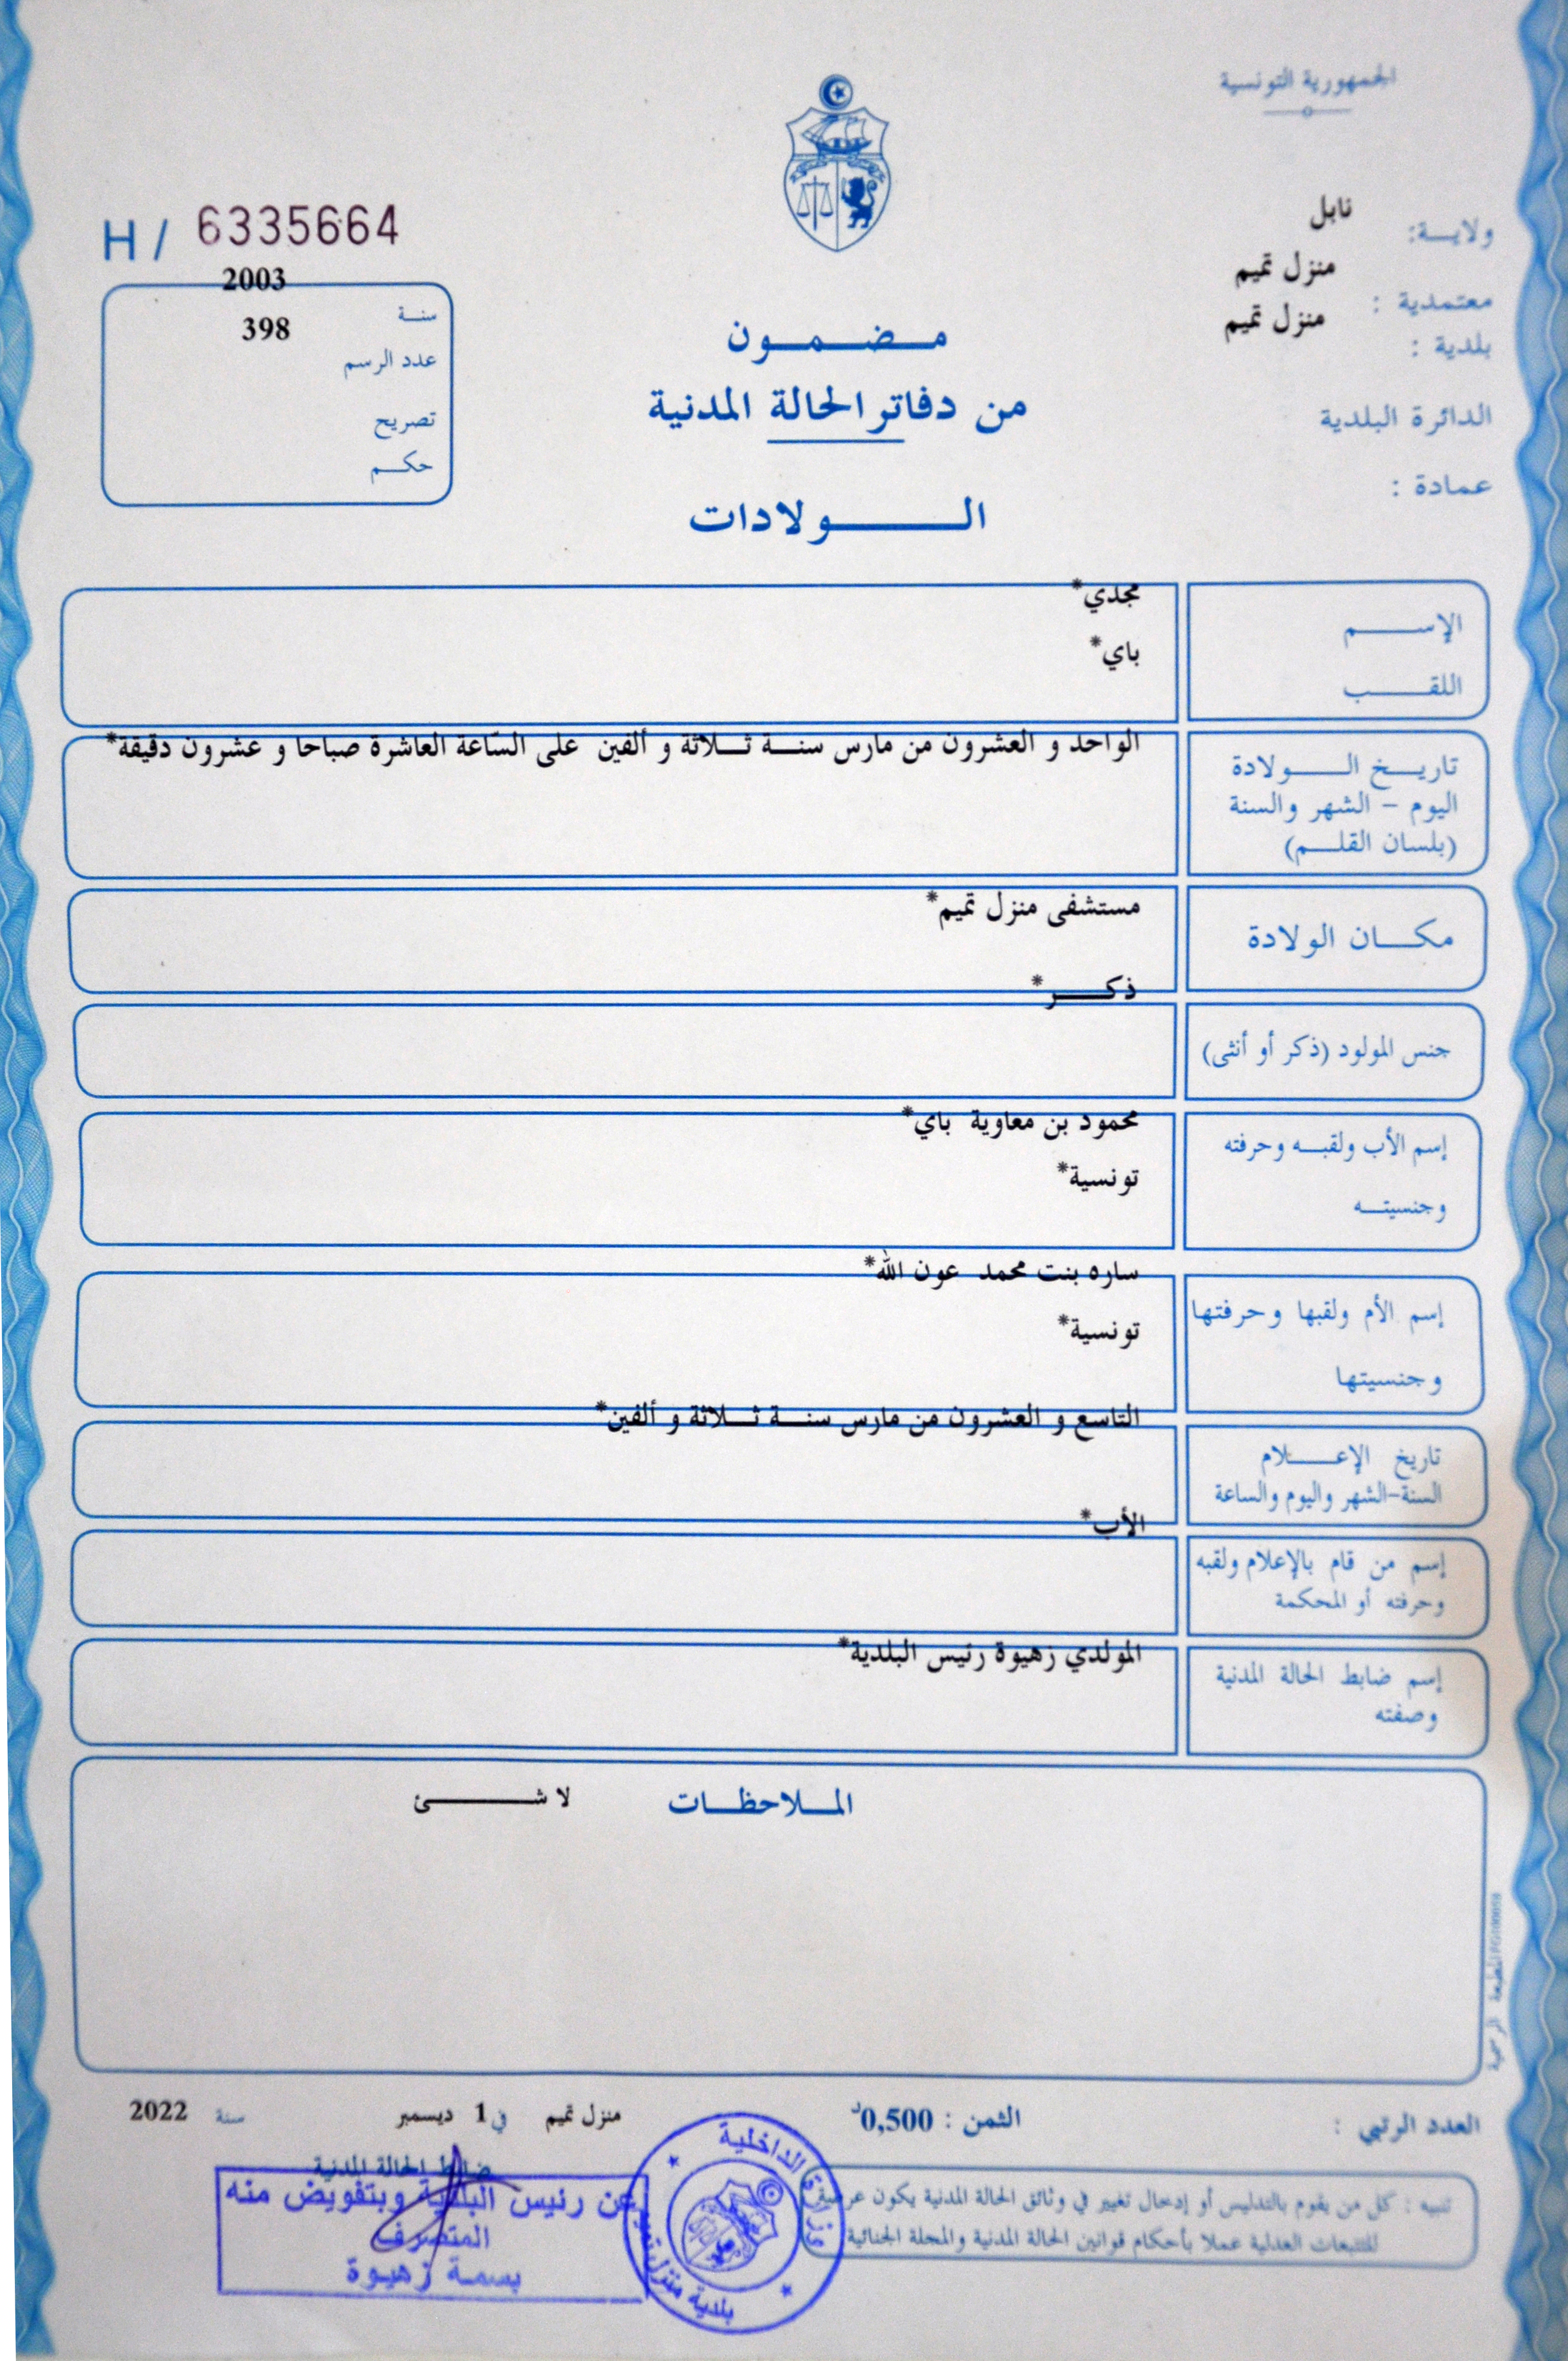 الجمهورية التونسية
ولايــة: نابل
معتمدية : منزل تميم
بلدية : منزل تميم
الدائرة البلدية
عمادة :
H / 6335664
سنــة 2003
عدد الرسم 398
تصريح
حكــم
مــضــمــون
من دفاتر الحالة المدنية
الــولادات
الإســم مجدي*
اللقــب باي*
تاريــخ الــولادة
اليوم - الشهر والسنة
(بلسان القلــم)
الواحد و العشرون من مارس سنــة ثــلاثة و ألفين على السّاعة العاشرة صباحا و عشرون دقيقة*
مكــان الولادة مستشفى منزل تميم*
جنس المولود (ذكر أو أنثى) ذكــر*
إسم الأب ولقبــه وحرفته محمود بن معاوية باي*
وجنسيتــه تونسية*
إسم الأم ولقبها وحرفتها ساره بنت محمد عون الله*
وجنسيتها تونسية*
تاريخ الإعــلام
السنة-الشهر واليوم والساعة
التاسع و العشرون من مارس سنــة ثــلاثة و ألفين*
إسم من قام بالإعلام ولقبه
وحرفته أو المحكمة
الأب*
إسم ضابط الحالة المدنية
وصفته
المولدي زهيوة رئيس البلدية*
المــلاحظــات لا شــئ
المطبعة الرسمية
العدد الرتبي :
الثمن : 0,500د
منزل تميم في 1 ديسمبر سنة 2022
ضابط الحالة المدنية
عن رئيس البلدية وبتفويض منه
المتصرف
بسمــة زهيوة
وزارة الداخلية
بلدية منزل تميم
تنبيه : كل من يقوم بالتدليس أو إدخال تغيير في وثائق الحالة المدنية يكون عرضة
للتتبعات العدلية عملا بأحكام قوانين الحالة المدنية والمجلة الجنائية